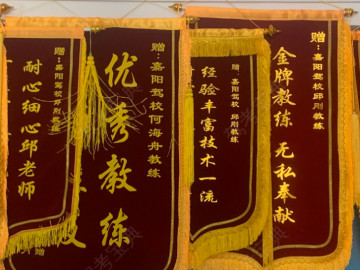 赠：嘉阳驾校邱刚教练
耐心细心邱老师
赠：嘉阳驾校何海舟教练
优秀教练
赠：嘉阳驾校 邱刚教练
经验丰富技术一流
赠：嘉阳驾校邱刚教练
金牌教练 无私奉献
赠